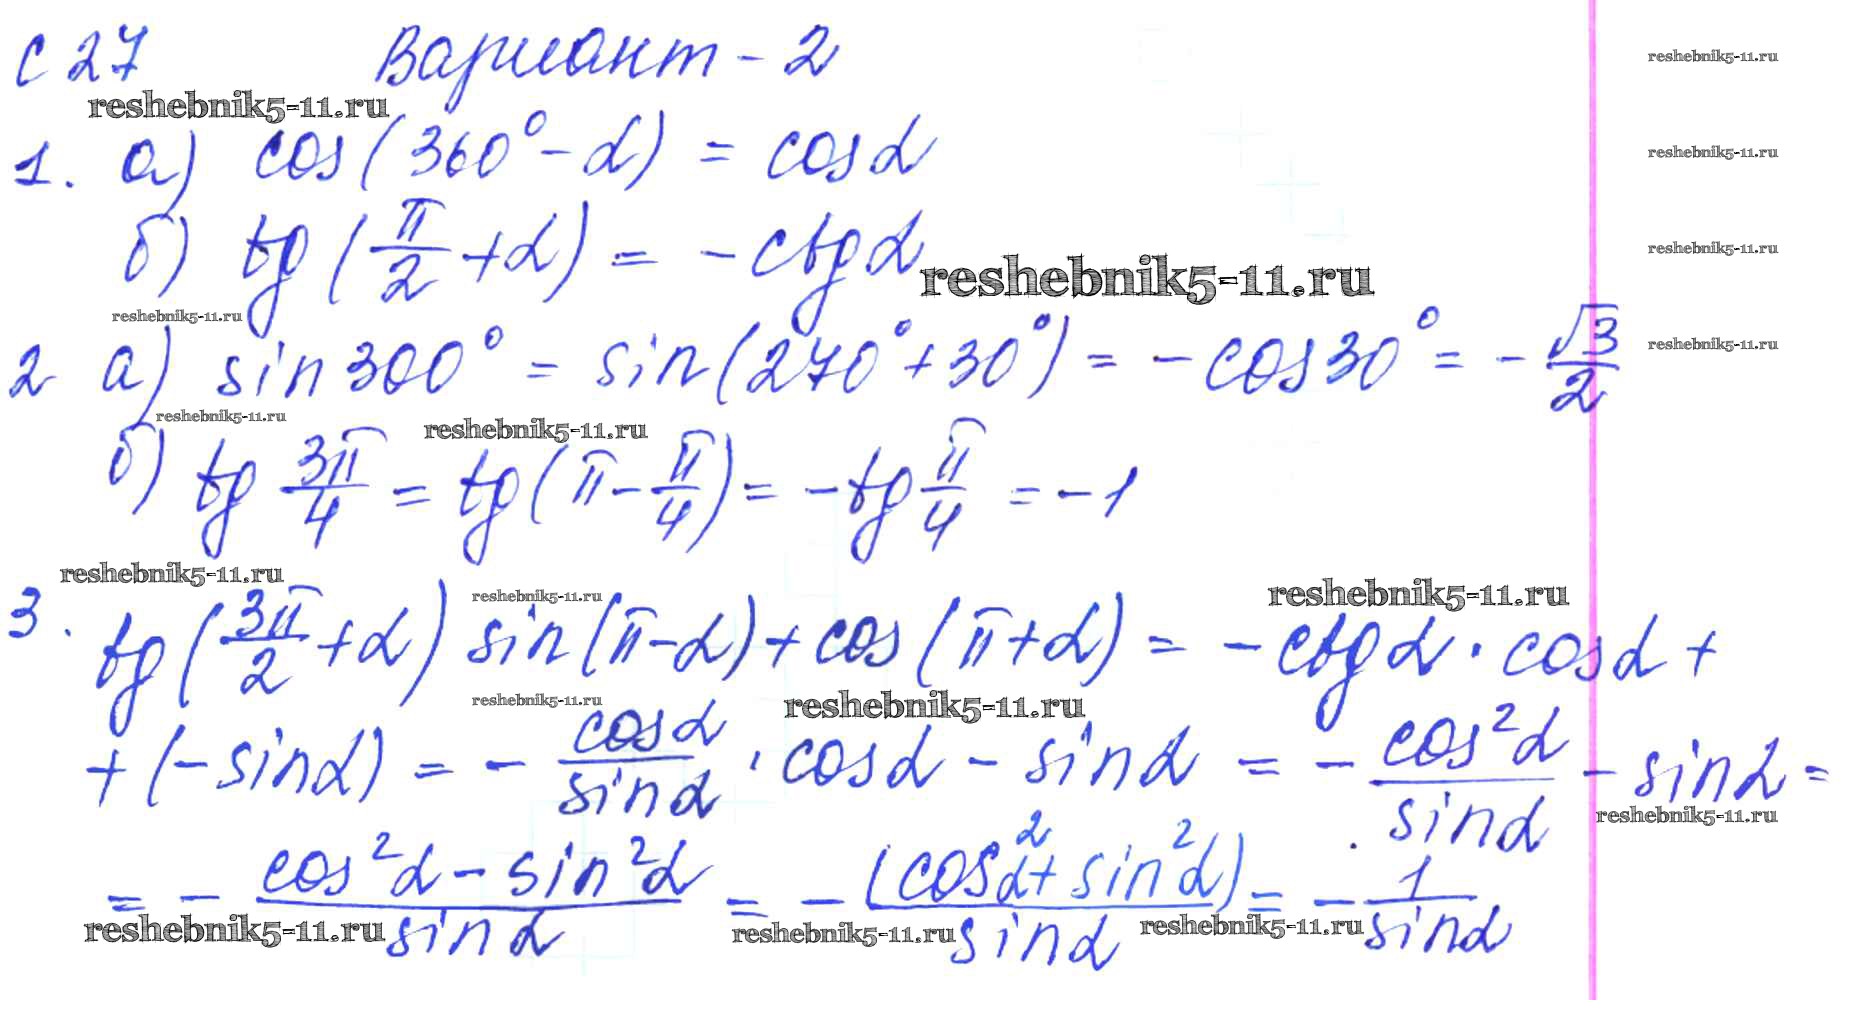 С 27 Вариант - 2
reshebnik5-11.ru
reshebnik5-11.ru
1. а) cos(360° - α) = cosα
reshebnik5-11.ru
б) tg(π/2 + α) = -ctgα
reshebnik5-11.ru
reshebnik5-11.ru
reshebnik5-11.ru
2 а) sin300° = sin(270° + 30°) = -cos30° = -√3/2
reshebnik5-11.ru
reshebnik5-11.ru
reshebnik5-11.ru
б) tg 3π/4 = tg(π - π/4) = -tg π/4 = -1
reshebnik5-11.ru
reshebnik5-11.ru
reshebnik5-11.ru
3. tg(3π/2 + α) sin(π - α) + cos(π + α) = -ctgα · cosα +
reshebnik5-11.ru
reshebnik5-11.ru
+ (-sinα) = - cosα/sinα · cosα - sinα = - cos²α/sinα - sinα =
reshebnik5-11.ru
= - cos²α - sin²α/sinα = - (cos²α + sin²α)/sinα = - 1/sinα
reshebnik5-11.ru
reshebnik5-11.ru
reshebnik5-11.ru